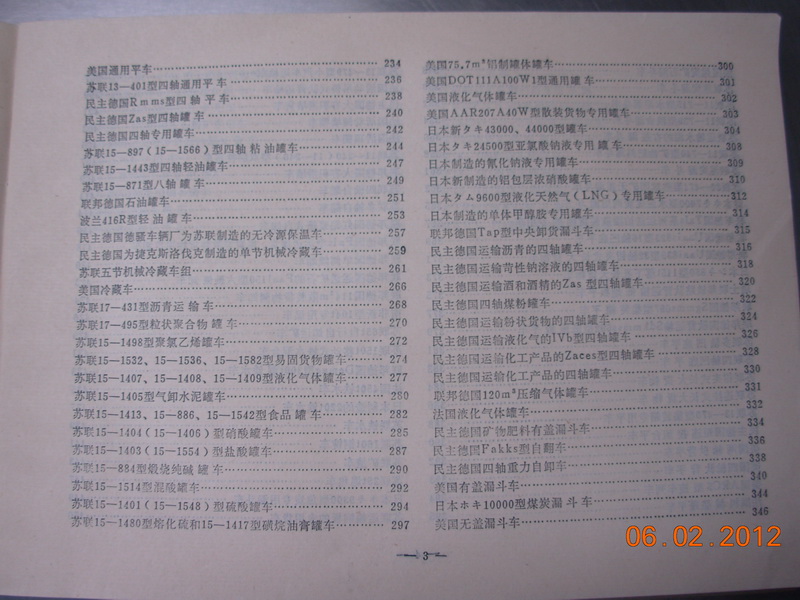 美国通用平车…………234
苏联13—401型四轴通用平车…………236
民主德国Rmms型四轴平车…………238
民主德国Zas型四轴罐车…………240
民主德国四轴专用罐车…………242
苏联15—897(15—1566)型四轴粘油罐车…………244
苏联15—1443型四轴轻油罐车…………247
苏联15—871型八轴罐车…………249
联邦德国石油罐车…………251
波兰416R型轻油罐车…………253
民主德国德骚车辆厂为苏联制造的无冷源保温车…………257
民主德国为捷克斯洛伐克制造的单节机械冷藏车…………259
苏联五节机械冷藏车组…………261
美国冷藏车…………266
苏联17—431型沥青运输车…………268
苏联17—495型粒状聚合物罐车…………270
苏联15—1498型聚氯乙烯罐车…………272
苏联15—1532、15—1536、15—1582型易固货物罐车…………274
苏联15—1407、15—1408、15—1409型液化气体罐车…………277
苏联15—1405型气卸水泥罐车…………280
苏联15—1413、15—886、15—1542型食品罐车…………282
苏联15—1404(15—1406)型硝酸罐车…………285
苏联15—1403(15—1554)型盐酸罐车…………287
苏联15—884型煅烧纯碱罐车…………290
苏联15—1514型混酸罐车…………292
苏联15—1401(15—1548)型硫酸罐车…………294
苏联15—1480型熔化硫和15—1417型磺烷油膏罐车…………297
美国75.7m³铝制罐体罐车…………300
美国DOT111A100W1型通用罐车…………301
美国液化气体罐车…………302
美国AAR207A40W型散装货物专用罐车…………303
日本新タキ43000、44000型罐车…………304
日本タキ24500型亚氯酸钠液专用罐车…………306
日本制造的氰化钠液专用罐车…………309
日本新制造的铝包层浓硝酸罐车…………310
日本タム9600型液化天然气(LNG)专用罐车…………312
日本制造的单体甲醇胺专用罐车…………314
联邦德国Tap型中央卸货漏斗车…………315
民主德国运输沥青的四轴罐车…………316
民主德国运输苛性钠溶液的四轴罐车…………318
民主德国运输酒和酒精的Zas型四轴罐车…………320
民主德国四轴煤粉罐车…………322
民主德国运输粉状货物的四轴罐车…………324
民主德国运输液化气的IVb型四轴罐车…………326
民主德国运输化工产品的Zaces型四轴罐车…………328
民主德国运输化工产品的四轴罐车…………330
联邦德国120m³压缩气体罐车…………331
法国液化气体罐车…………332
民主德国矿物肥料有盖漏斗车…………334
民主德国Fakks型自翻车…………336
民主德国四轴重力自卸车…………338
美国有盖漏斗车…………340
日本ホキ10000型煤炭漏斗车…………344
美国无盖漏斗车…………346
— 3 —
06.02.2012